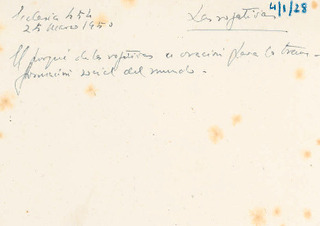 Ecclesia 454
25 Marzo 1950
Las rogativas
4/1/28
El porqué de las rogativas es oración para la trans-
formación social del mundo.